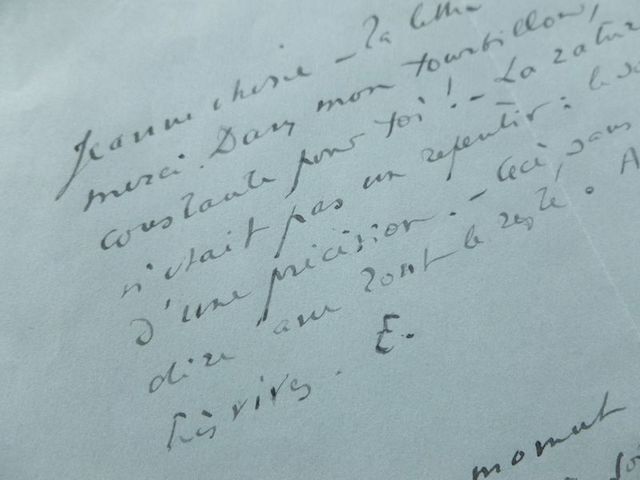 Jeanne chérie – Ta lettre
merci. Dans mon tourbillon,
constante pour toi ! – La ratur
n'était pas un repentir : le so
d'une précision. – Ceci, sans
dire que tout le reste. A
Très vives. E.
moment